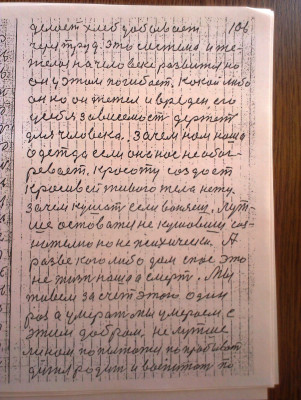 делает хлеб добывает 106
чем труд. Это система и те-
жела на человеке развита но
он у этом погибает. Какой либо
он не он тежел и вреден его
учеба зависемост держет
для человека. Зачем нам наша
одетда если она нас не обог-
ревает. Красоту создает
красивей живого тела нету.
Зачем кушат если воняеш. Лут-
ше остоватся не кушавшы соз-
нателно но не психически. А
разве кого либо дом спас это
не жизн наша а смерт. Мы
живем за счет этого один
раз а умерат мы умераем, с
этим добрам, не лутше
ли нам попитатся попробыват
дитя родит и воспитат по